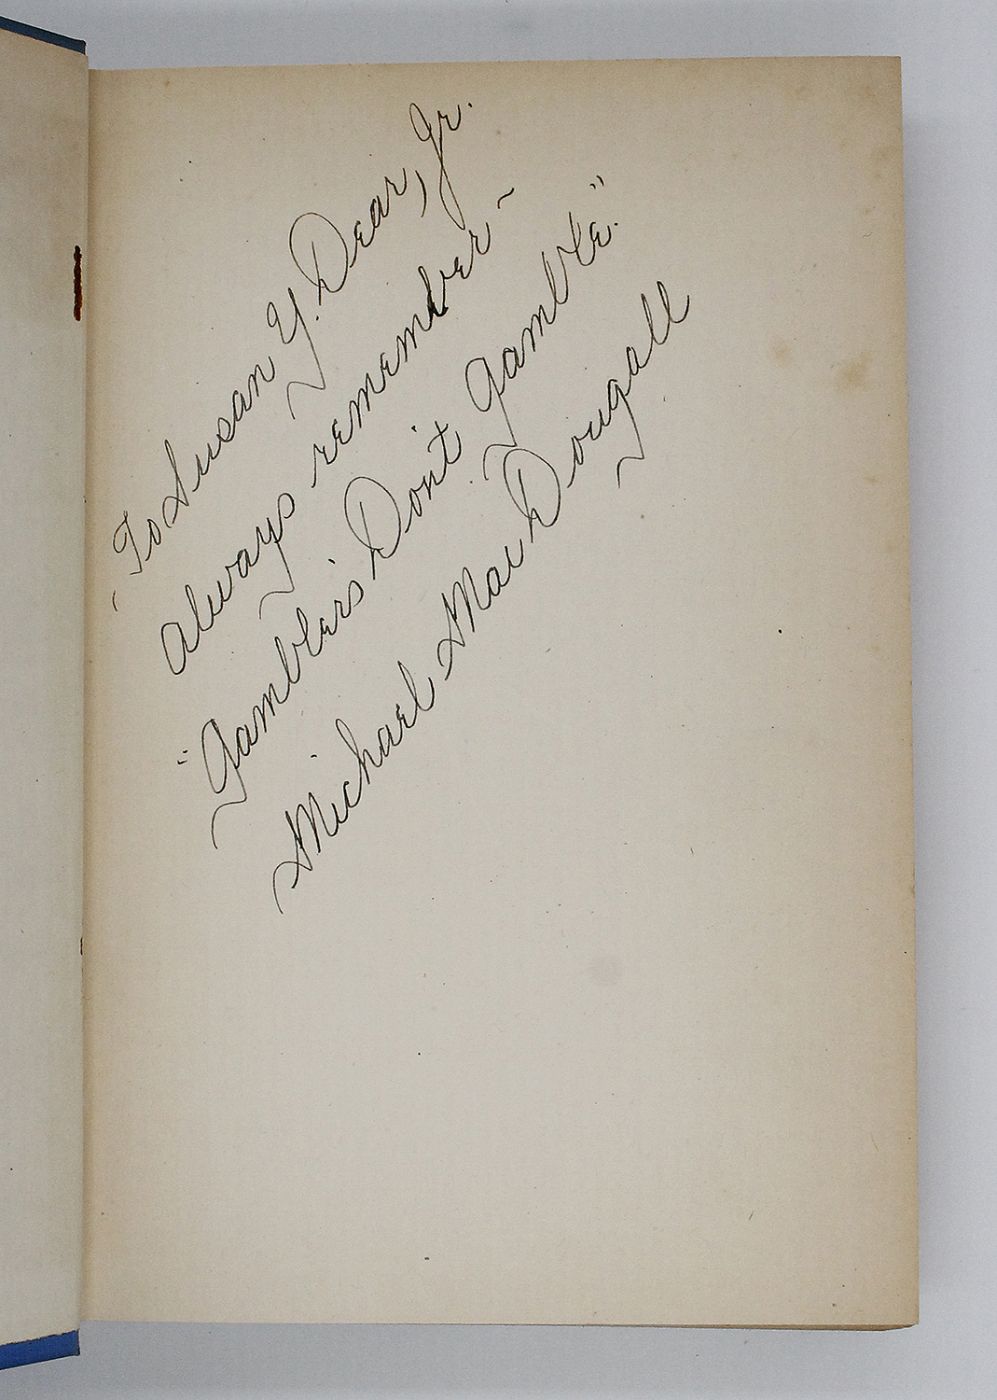 To Susan Y. Dear, Jr.
always remember -
"Gambler's Don't Gamble."
Michael MacDougall